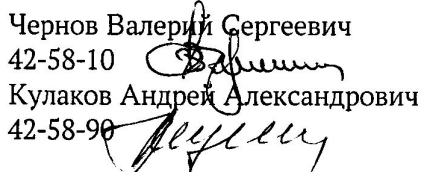 Чернов Валерий Сергеевич
42-58-10
Кулаков Андрей Александрович
42-58-90